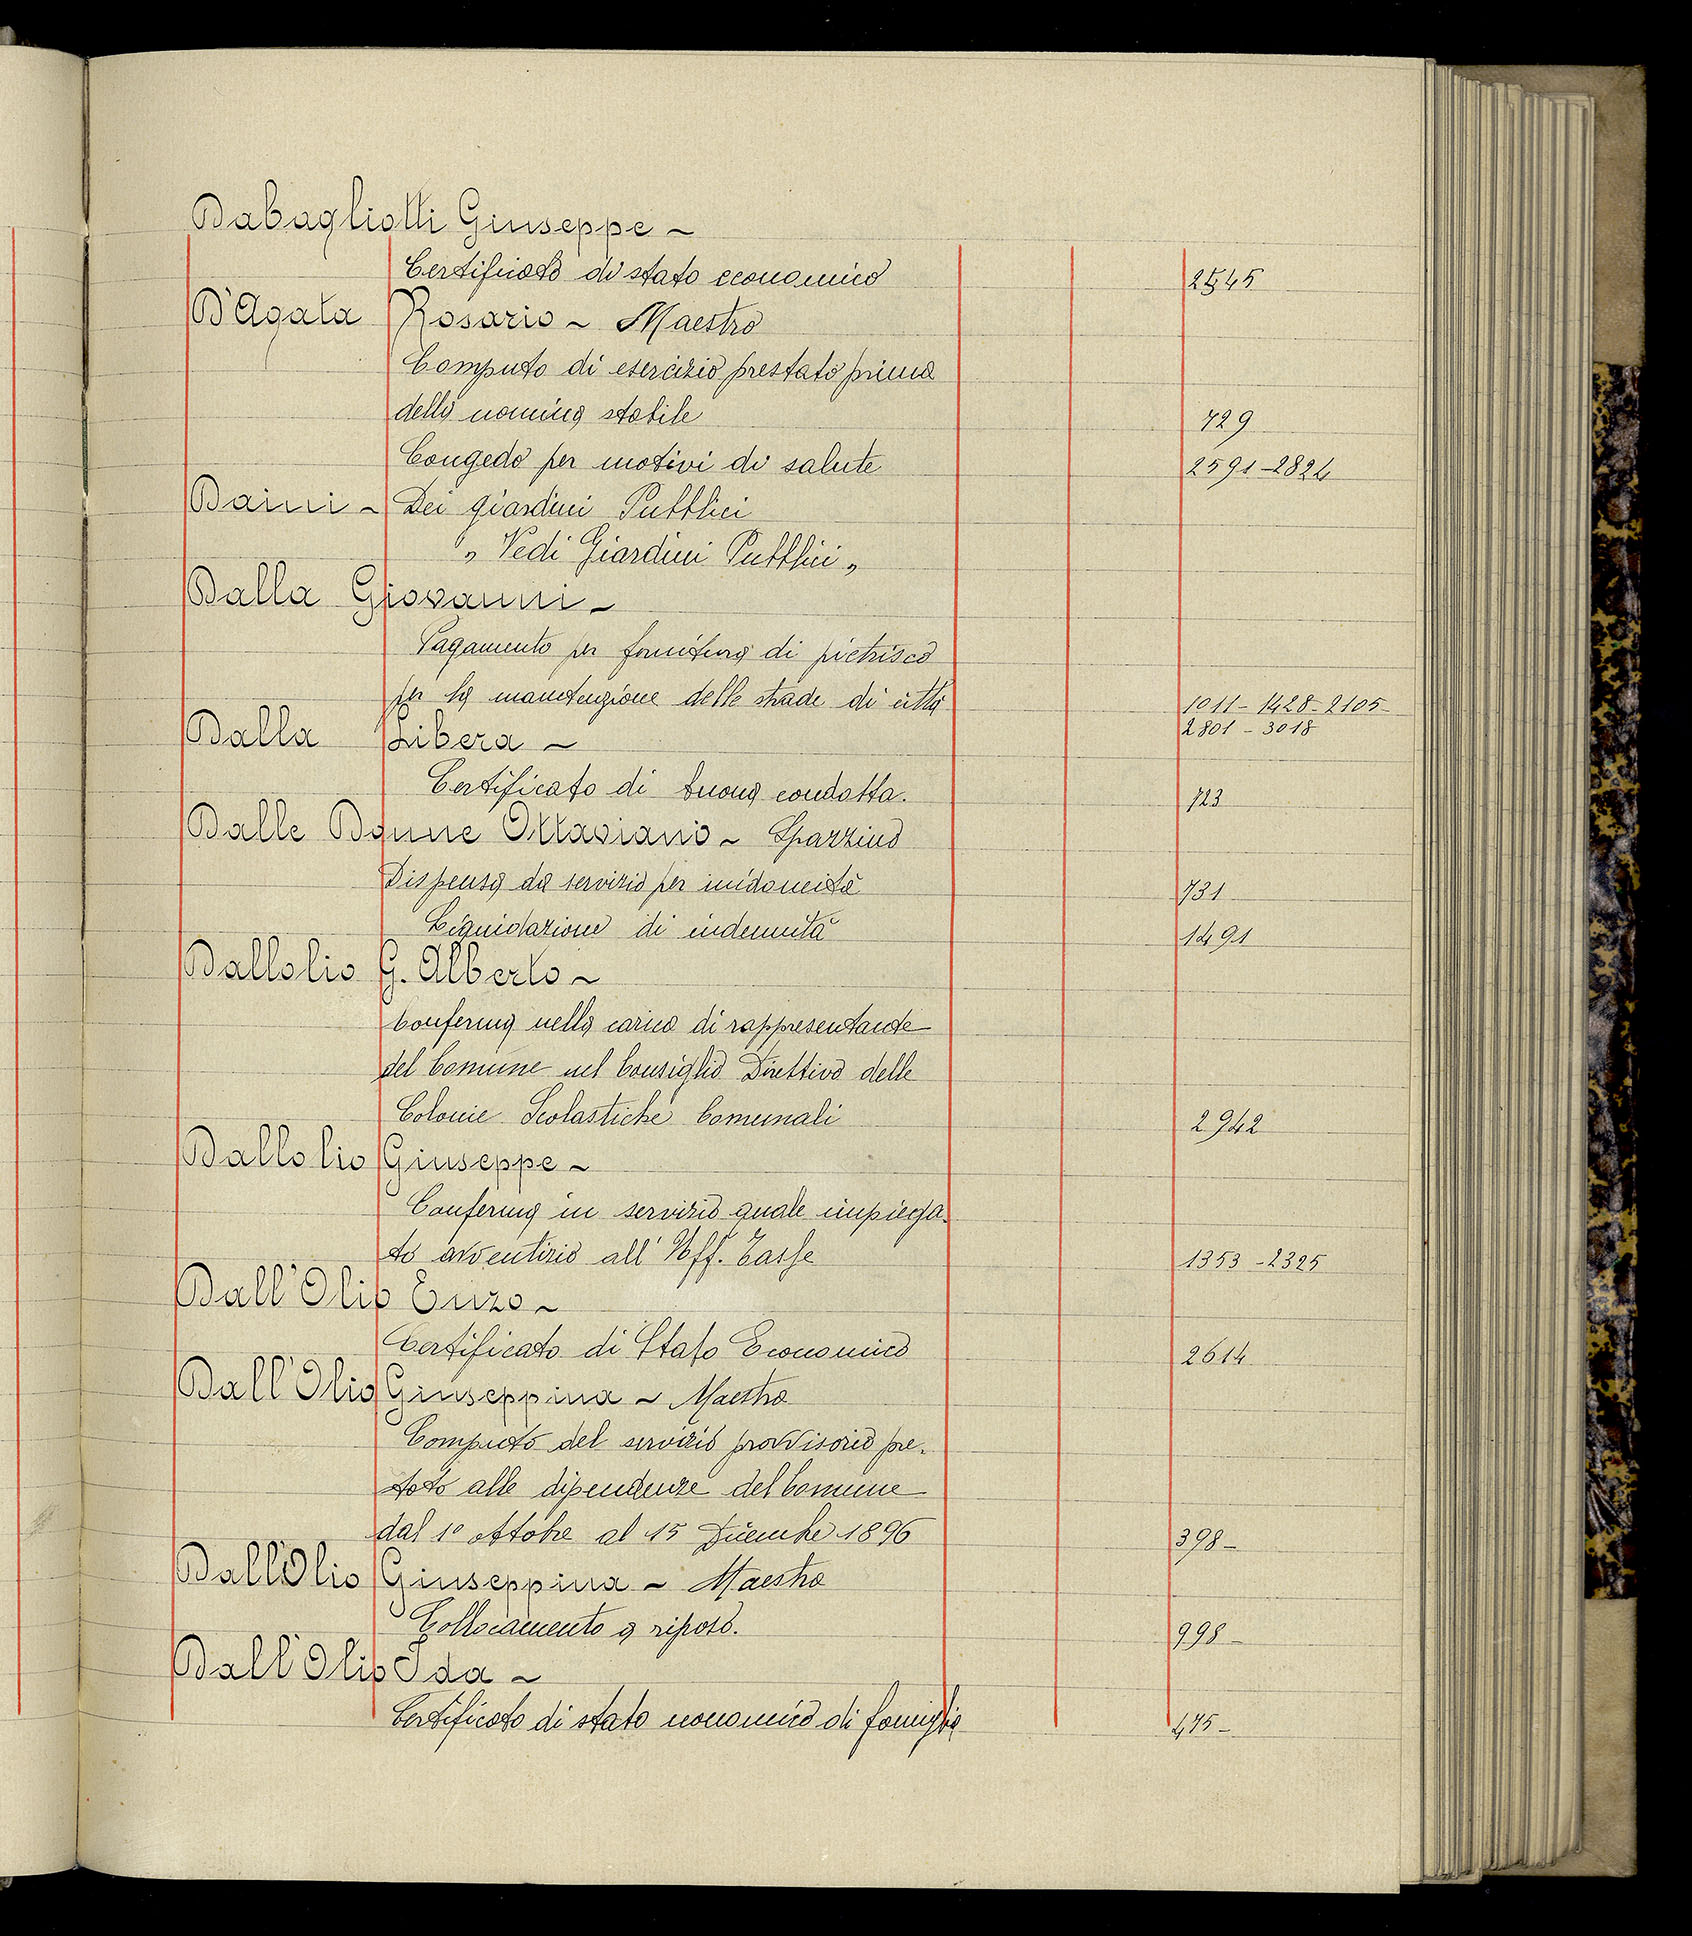 Dabagliotti Giuseppe ~
Certificato di stato economico 2545
D'Agata Rosario ~ Maestro
Computo di esercizio prestato prima
della nomina stabile 729
Congedo per motivi di salute 2591-2824
Daini ~ Dei giardini Pubblici
„ Vedi Giardini Pubblici „
Dalla Giovanni ~
Pagamento per fornitura di pietrisco
per la manutenzione delle strade di città 1011 - 1428 - 2105 -
2801 - 3018
Dalla Libera ~
Certificato di buona condotta. 723
Dalle Donne Ottaviano ~ Spazzino
Dispensa da servizio per inidoneità 731
Liquidazione di indennità 1491
Dallolio G. Alberto ~
Conferma nella carica di rappresentante
del Comune nel Consiglio Direttivo delle
Colonie Scolastiche Comunali 2942
Dallolio Giuseppe ~
Conferma in servizio quale impiega-
to avventizio all'Uff. Tasse 1353 - 2325
Dall'Olio Enzo ~
Certificato di Stato Economico 2614
Dall'Olio Giuseppina ~ Maestra
Computo del servizio provvisorio pre-
stato alle dipendenze del Comune
dal 1° ottobre al 15 Dicembre 1896 398 -
Dall'Olio Giuseppina ~ Maestra
Collocamento a riposo. 998 -
Dall'Olio Ida ~
Certificato di stato economico di famiglia 475 -